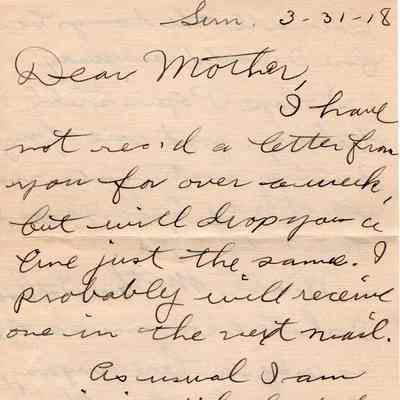 Sun. 3-31-18
Dear Mother,
I have
not rec'd a letter from
you for over a week,
but will drop you a
line just the same. I
probably will receive
one in the next mail.
As usual I am